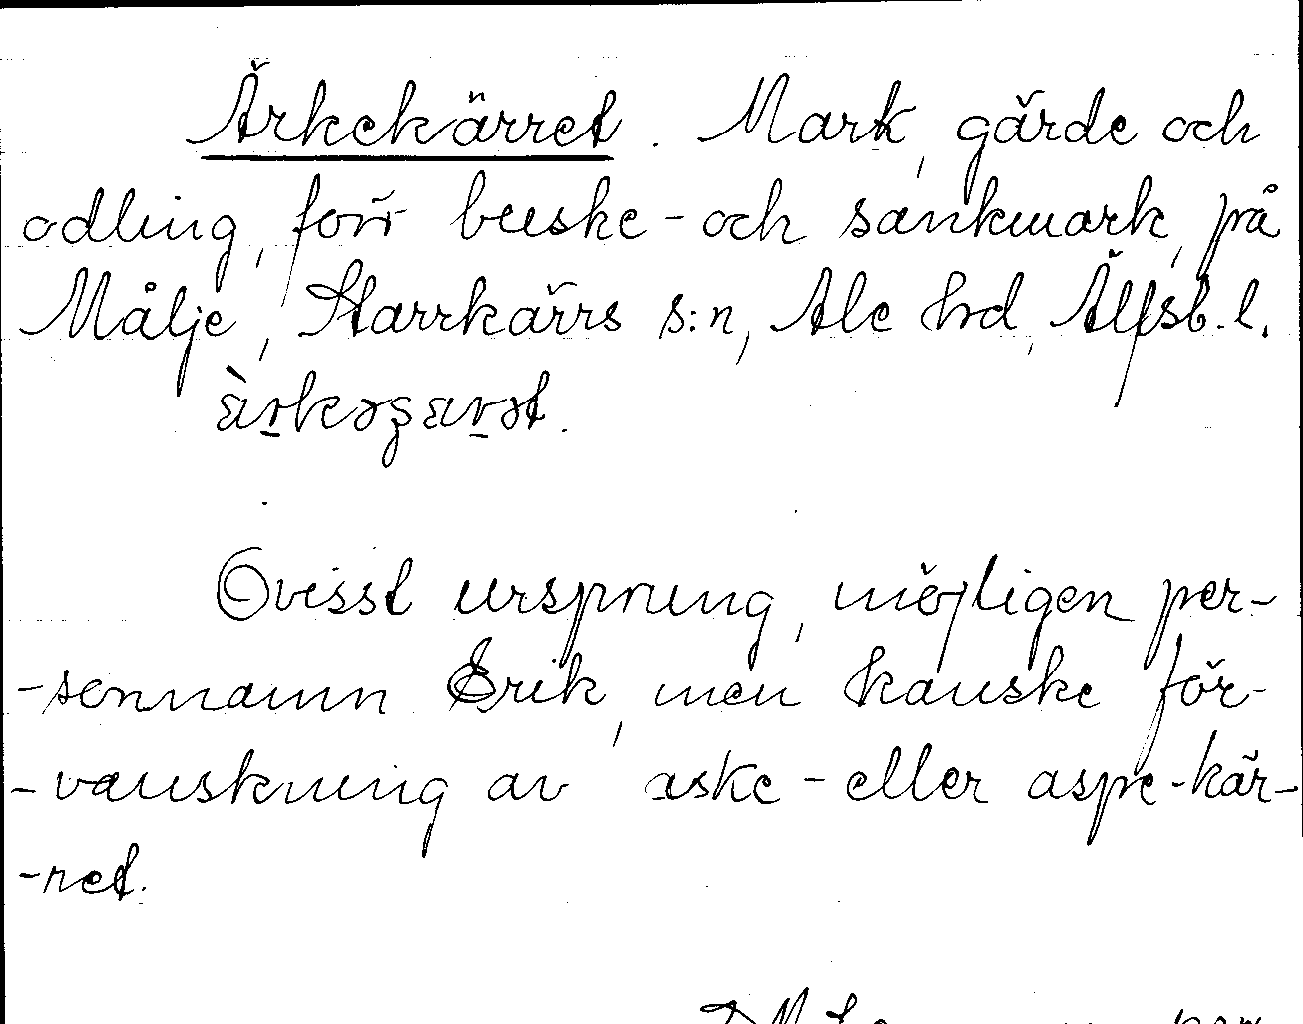 Ärkekärret. Mark, gärde och
odling, förr buske- och sankmark, på
Målje, Starrkärrs s:n, Ale hd, Älfsb. l.
Ovisst ursprung, möjligen per-
-sonnamn Erik, men kanske för-
-vanskning av aske- eller aspe-kär-
-ret.